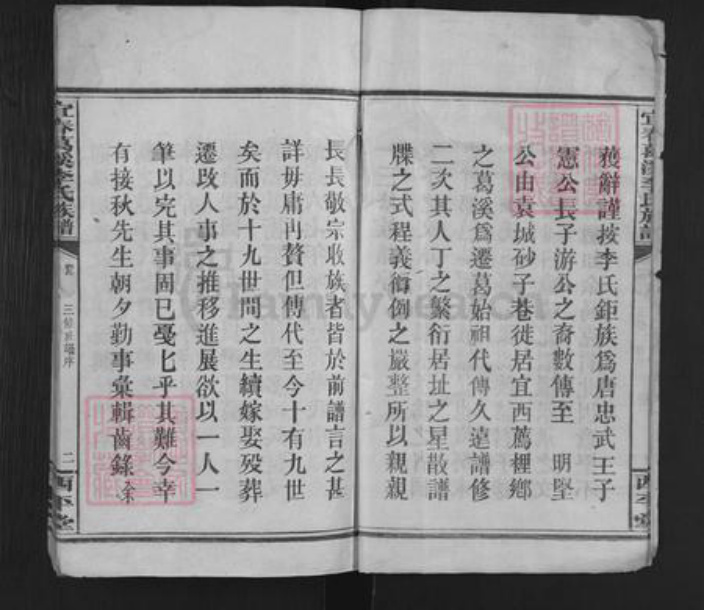 宜春葛溪李氏族譜
獲辭謹按李氏鉅族爲唐忠武王子
憲公長子游公之裔數傳至　明堅
公由袁城砂子巷徙居宜西薦裡鄉
之葛溪爲遷葛始祖代傳久遠譜修
二次其人丁之繁衍居址之星散譜
牒之式程義銜例之嚴整所以親親
長長敬宗收族者皆於前譜言之甚
詳毋庸再贅但傳代至今十有九世
矣而於十九世間之生續嫁娶殁葬
遷改人事之推移進展欲以一人一
筆以完其事固已憂乎其難今幸
有接秋先生朝夕勤事彙輯齒錄余
宜春葛溪李氏族譜
三修族譜序
二
西平堂
西平堂